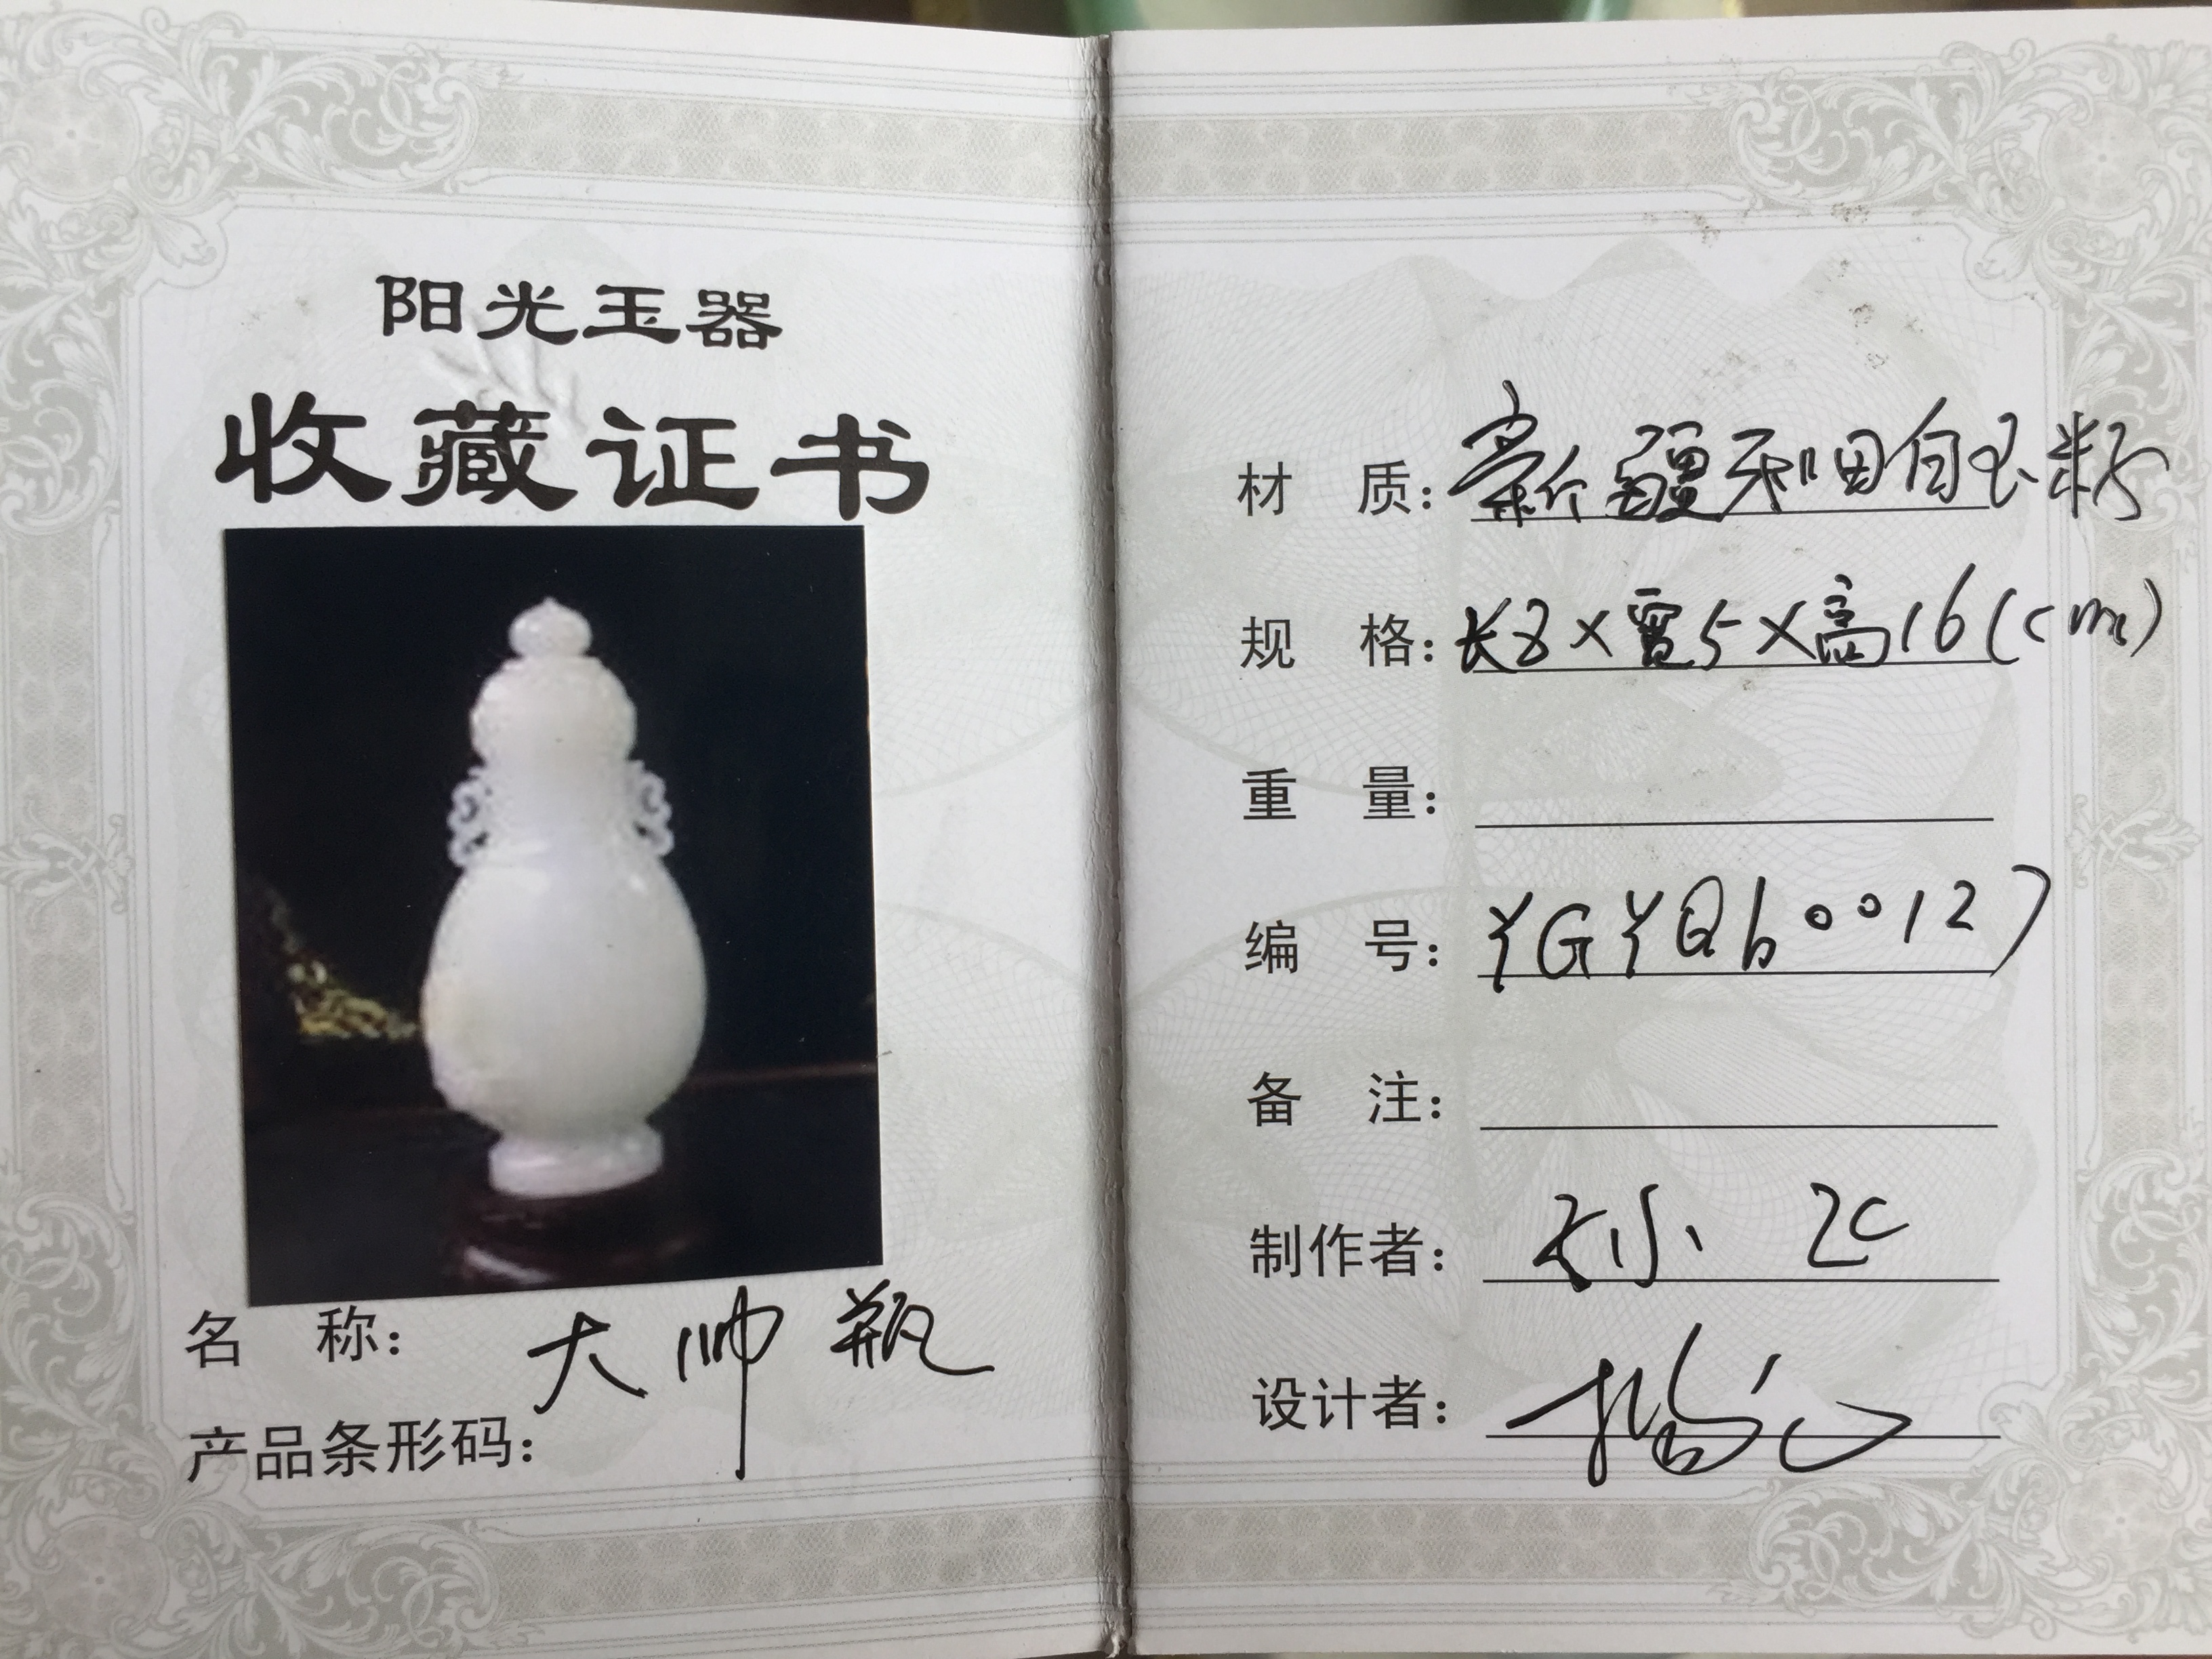 阳光玉器
收藏证书
名 称: 大帅瓶
产品条形码:
材 质: 新疆和田白玉籽
规 格: 长8×宽5×高16(cm)
重 量:
编 号: YGYQb00127
备 注:
制作者: 孙飞
设计者: